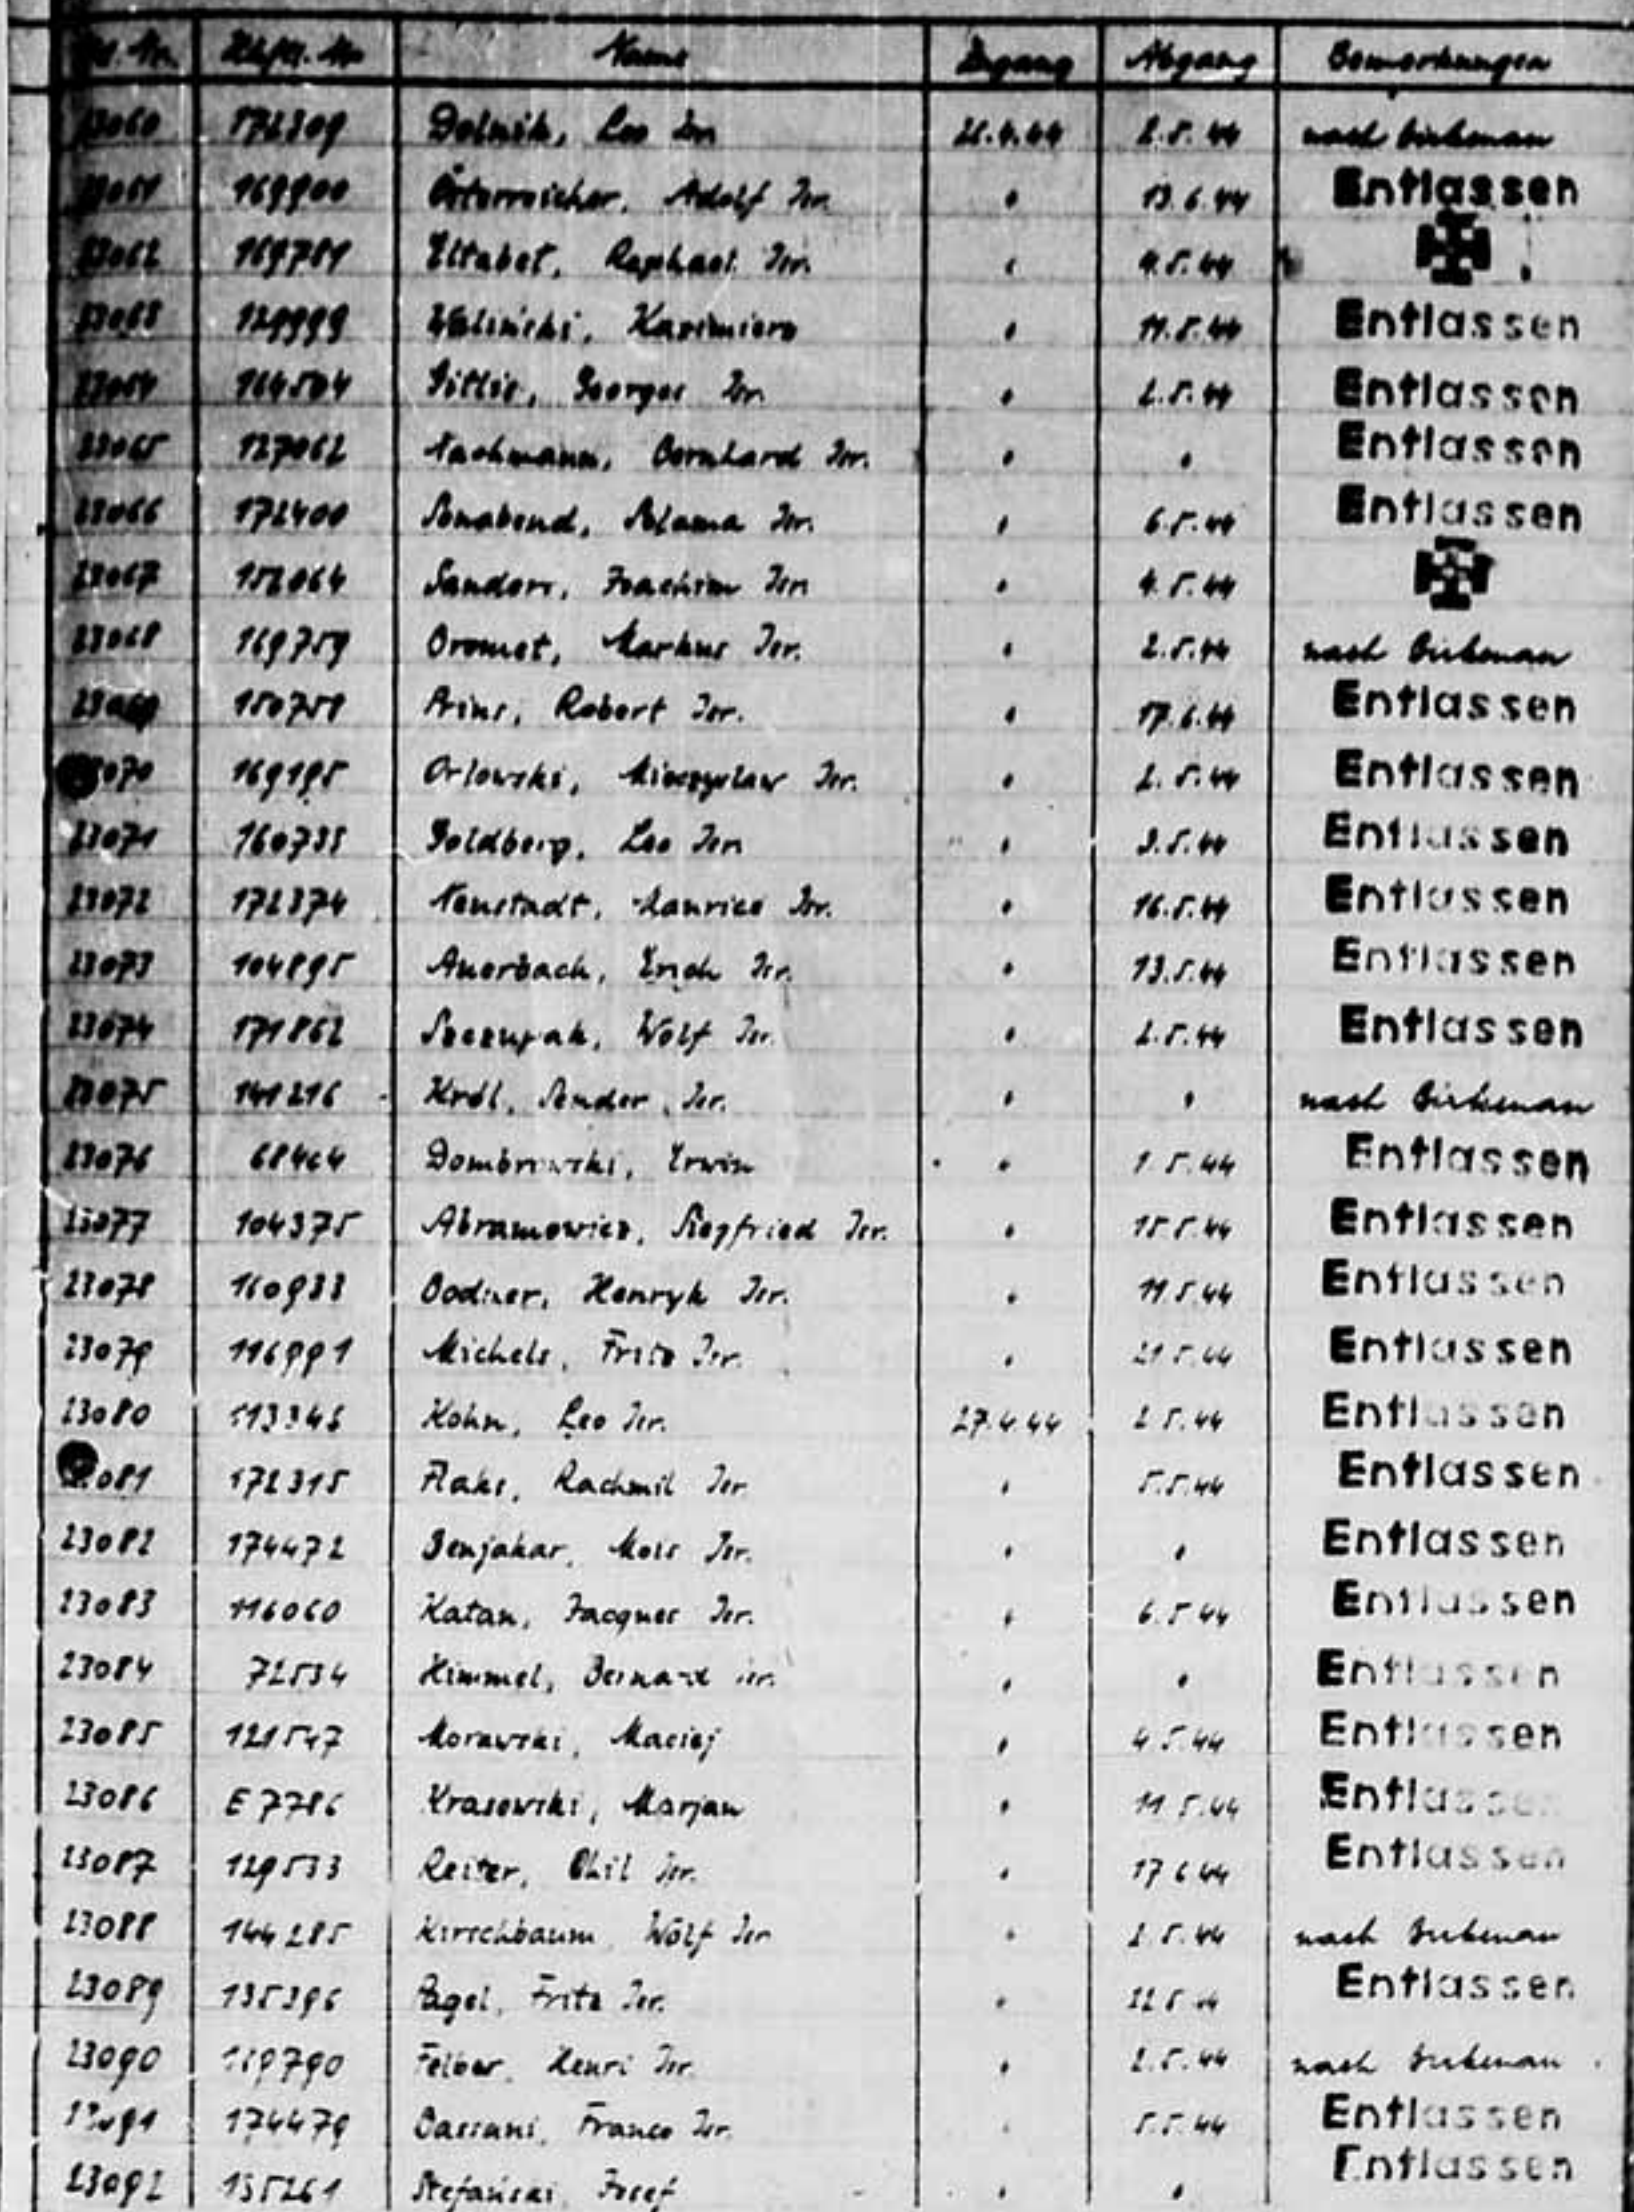 Name Zugang Abgang Bemerkungen
23060 172309 Dolnik, Leo Isr. 26.4.44 2.5.44 nach Birkenau
23061 169900 Österreicher, Adolf Isr. " 13.6.44 Entlassen
23062 Raphael Isr. " 4.5.44
23063 129999 Kazimierz " 11.5.44 Entlassen
23064 164504 Georges Isr. " 2.5.44 Entlassen
23065 127062 Nachmann, Bernhard Isr. " " Entlassen
23066 172400 Isr. " 6.5.44 Entlassen
23067 Sanders, Joachim Isr. " 4.5.44
23068 169759 Markus Isr. " 2.5.44 nach Birkenau
23069 Prins, Robert Isr. " 17.6.44 Entlassen
23070 169195 Orlowski, Mieczyslaw Isr. " 2.5.44 Entlassen
23071 160735 Goldberg, Leo Isr. " 3.5.44 Entlassen
23072 172374 Neustadt, Maurice Isr. " 16.5.44 Entlassen
23073 104895 Auerbach, Erich Isr. " 13.5.44 Entlassen
23074 171862 Szczupak, Wolf Isr. " 2.5.44 Entlassen
23075 141216 Król, Sender Isr. " " nach Birkenau
23076 Dombrowski, Erwin " 1.5.44 Entlassen
23077 104375 Abramowicz, Siegfried Isr. " 15.5.44 Entlassen
23078 160933 Bodner, Henryk Isr. " 11.5.44 Entlassen
23079 116991 Michels, Fritz Isr. " 21.5.44 Entlassen
23080 Kohn, Leo Isr. 27.4.44 2.5.44 Entlassen
23081 172315 Flaks, Rachmil Isr. " 5.5.44 Entlassen
23082 174472 Benjakar, Mois Isr. " " Entlassen
23083 116060 Katan, Jacques Isr. " 6.5.44 Entlassen
23084 72534 Himmel, Bernard Isr. " " Entlassen
23085 121547 Morawski, Maciej " 4.5.44 Entlassen
23086 E 7786 Krasowski, Marjan " 11.5.44 Entlassen
23087 129533 Reiter, Chil Isr. " 17.6.44 Entlassen
23088 144285 Kirschbaum, Wolf Isr. " 2.5.44 nach Birkenau
23089 135396 Pagel, Fritz Isr. " Entlassen
23090 Felber, Henri Isr. " 2.5.44 nach Birkenau
23091 174479 Bassani, Franco Isr. " 5.5.44 Entlassen
23092 135261 Stefański, Josef " " Entlassen